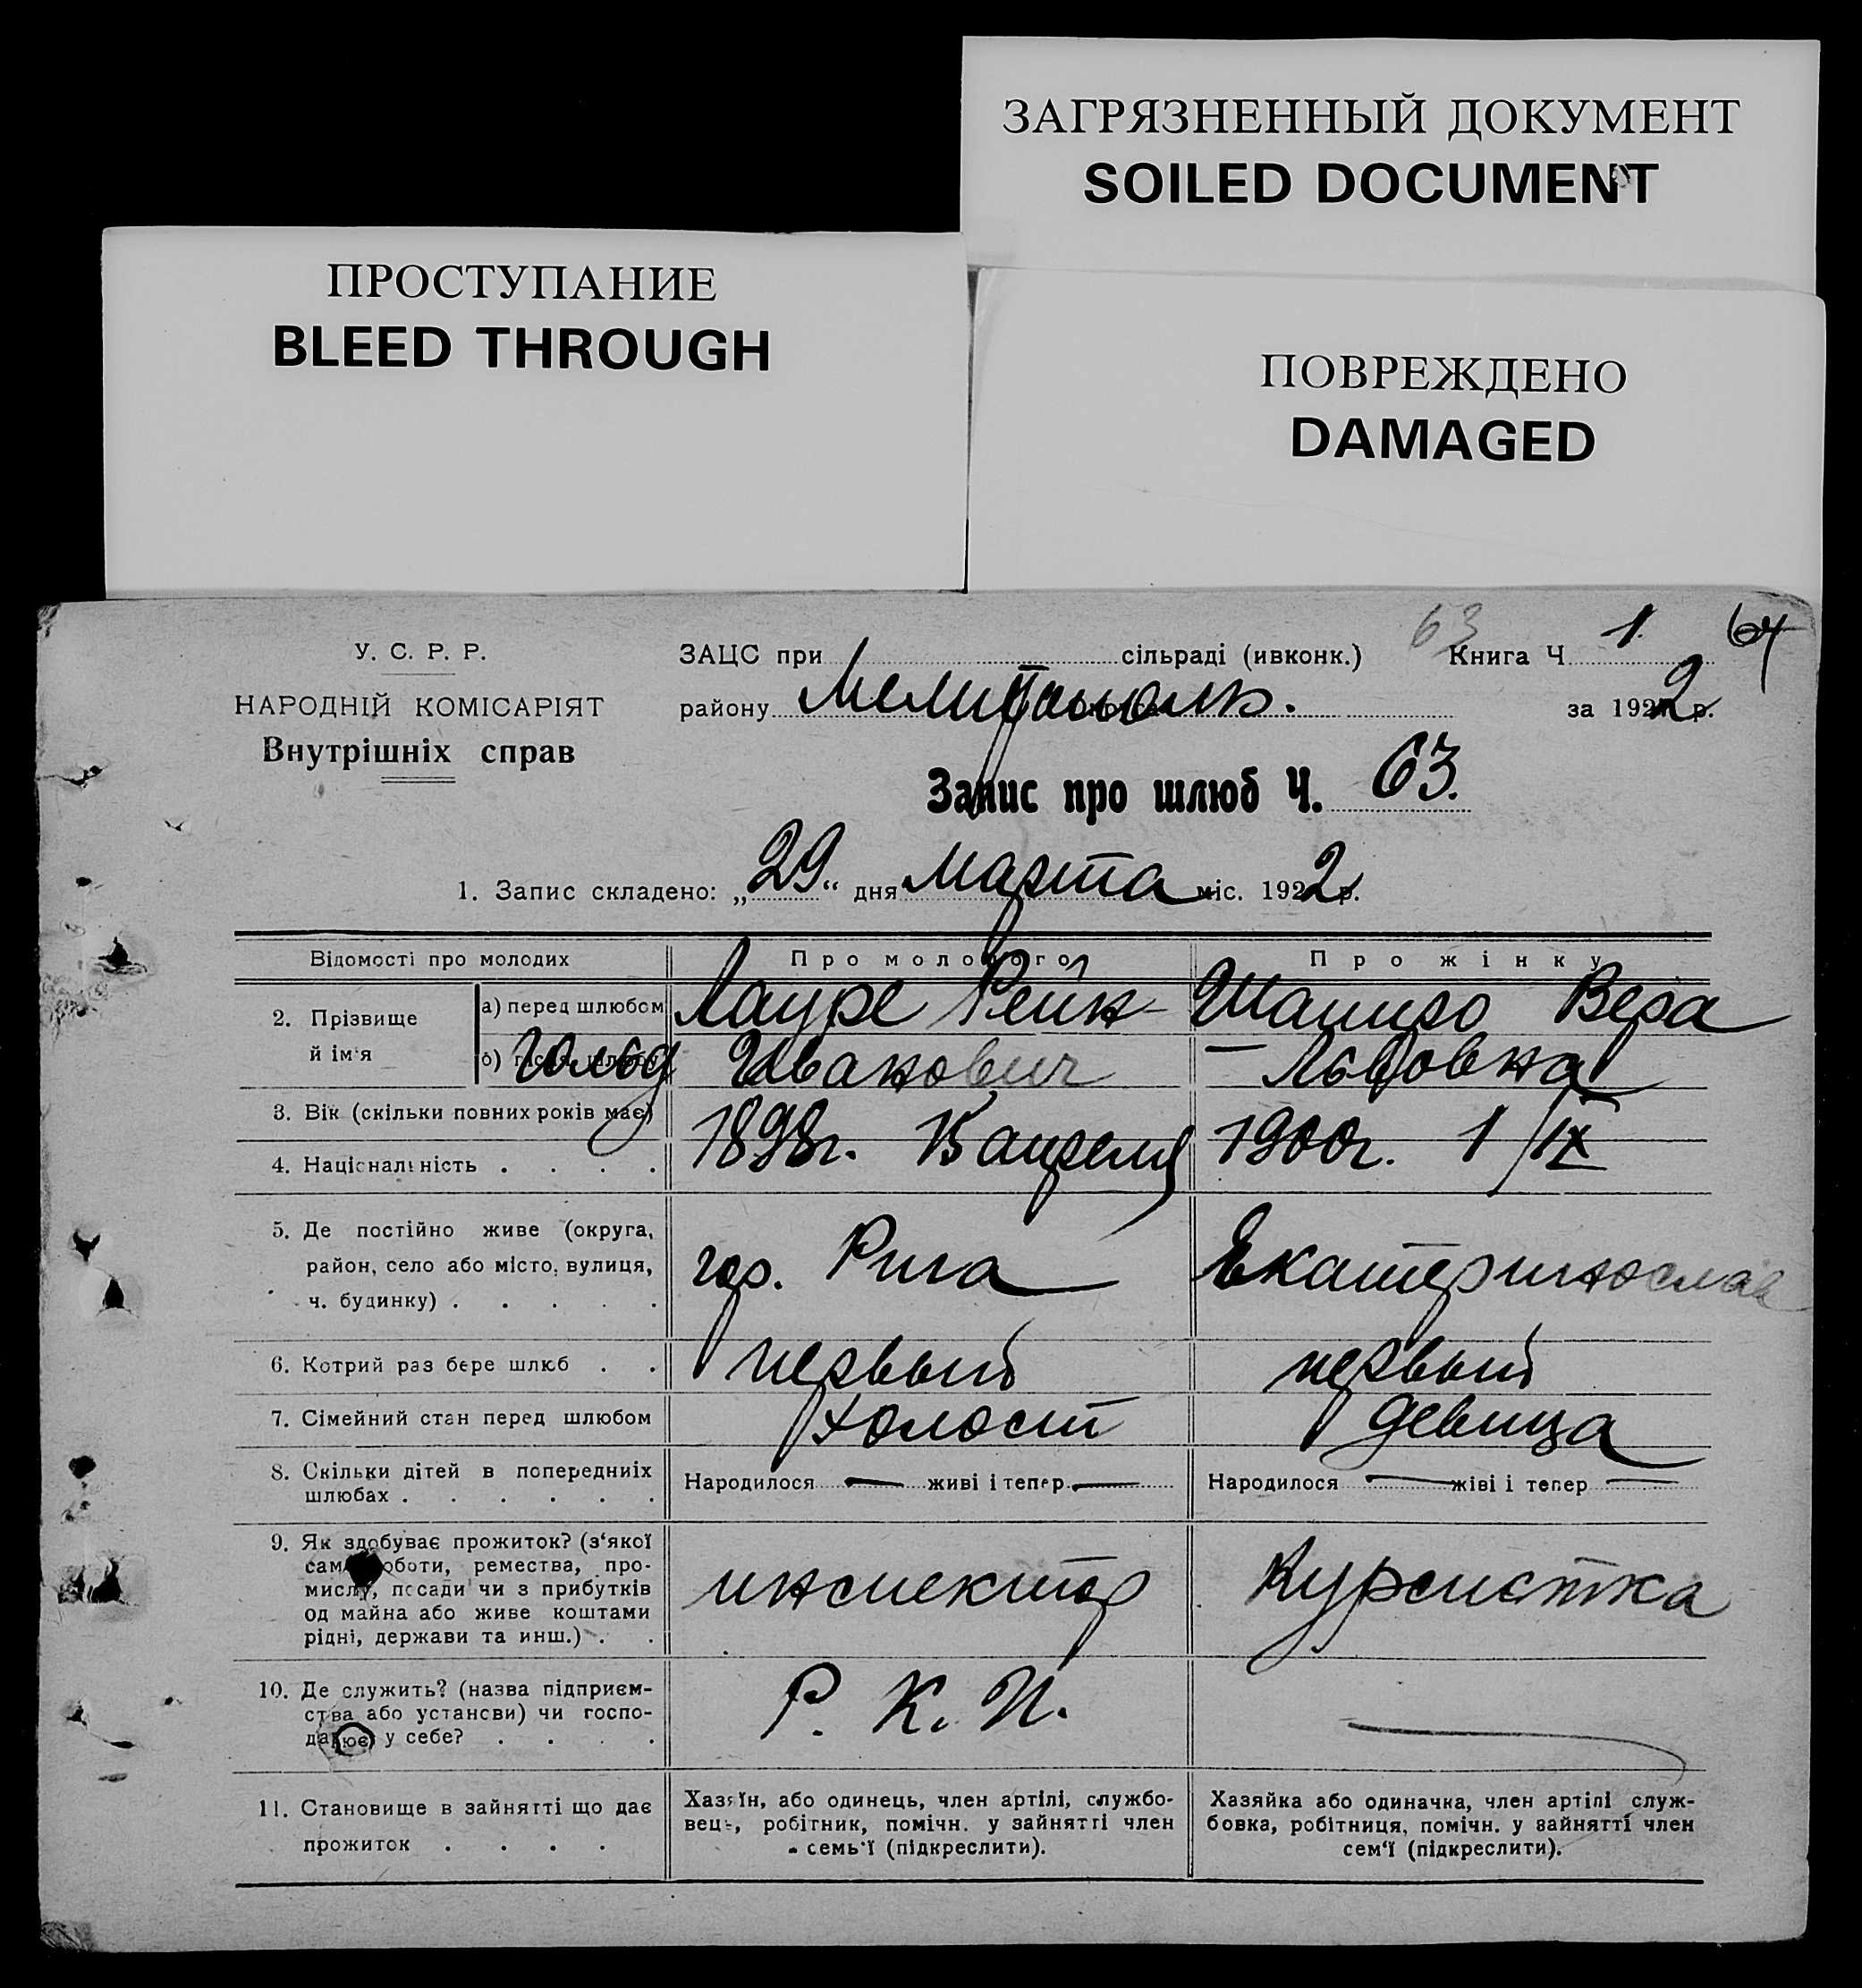 ЗАГРЯЗНЕННЫЙ ДОКУМЕНТ
SOILED DOCUMENT
ПРОСТУПАНИЕ
BLEED THROUGH
ПОВРЕЖДЕНО
DAMAGED
У. С. Р. Р.
НАРОДНІЙ КОМІСАРІЯТ
Внутрішніх справ
63 64
ЗАЦС при сільраді (ивконк.) Книга Ч 1.
району Мелитопольск. за 1922 р.
Запис про шлюб Ч. 63.
1. Запис складено: „29“ дня марта міс. 1922 р.
Відомості про молодих Про молодого Про жінку
2. Прізвище й ім'я а) перед шлюбом Лауре Рейн- Шапиро Вера
б) гольд Иванович — Львовна
3. Вік (скільки повних років має)
4. Національність . . . . 1898г. 15 апреля 1900г. 1/IX
5. Де постійно живе (округа,
район, село або місто, вулиця, гор. Рига Екатеринослав
ч. будинку) . . . . .
6. Котрий раз бере шлюб . . первый первый
7. Сімейний стан перед шлюбом холост девица
8. Скільки дітей в попередниіх Народилося — живі і тепер — Народилося — жіві і тепер —
шлюбах . . . . . .
9. Як здобуває прожиток? (з'якої
оботи, ремества, про-
мислу, посади чи з прибутків инспектор Курсистка
од майна або живе коштами
рідні, держави та инш.) . .
10. Де служить? (назва підприєм-
ства або установи) чи госпо- Р. К. И. —
дарює у себе? . . . .
11. Становище в зайнятті що дає
прожиток . . . .
Хазяїн, або одинець, член артілі, службо-
вець, робітник, помічн. у зайнятті член
семь'ї (підкреслити).
Хазяйка або одиначка, член артілі служ-
бовка, робітниця, помічн. у зайнятті член
сем'ї (підкреслити).